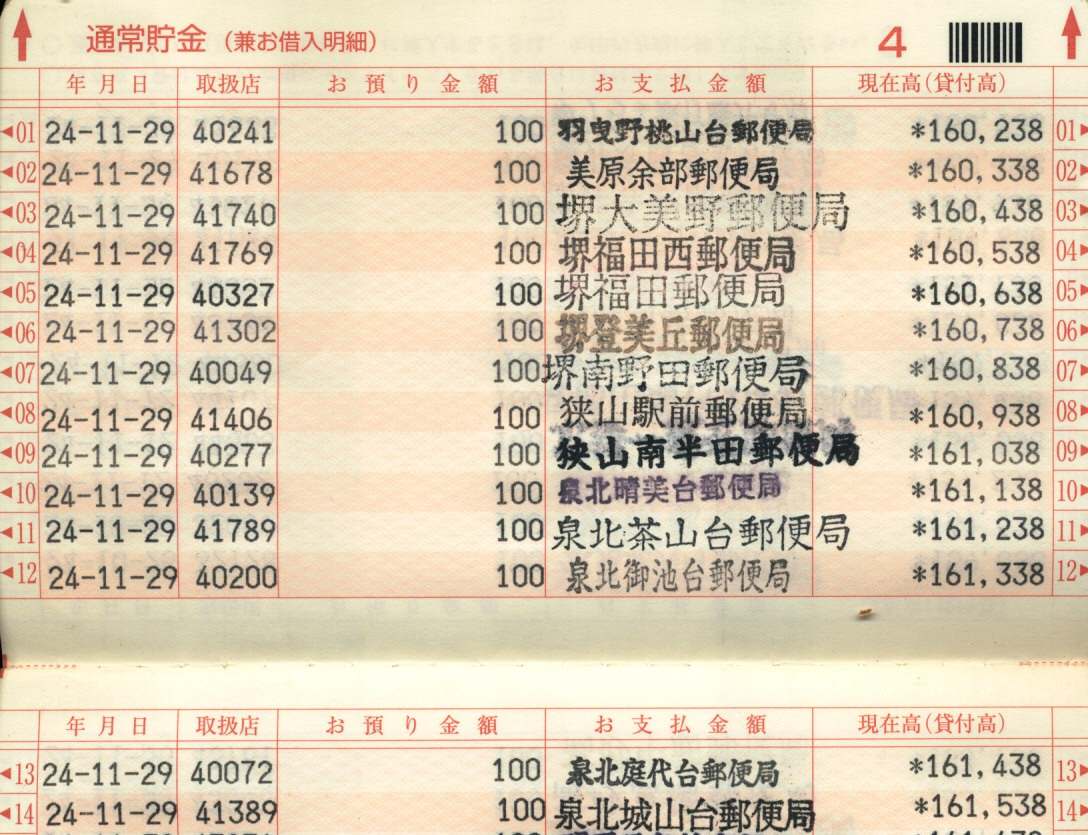 通常貯金（兼お借入明細） 4
年月日 取扱店 お預り金額 お支払金額 現在高(貸付高)
01 24-11-29 40241 100 羽曳野桃山台郵便局 *160,238 01
02 24-11-29 41678 100 美原余部郵便局 *160,338 02
03 24-11-29 41740 100 堺大美野郵便局 *160,438 03
04 24-11-29 41769 100 堺福田西郵便局 *160,538 04
05 24-11-29 40327 100 堺福田郵便局 *160,638 05
06 24-11-29 41302 100 堺登美丘郵便局 *160,738 06
07 24-11-29 40049 100 堺南野田郵便局 *160,838 07
08 24-11-29 41406 100 狭山駅前郵便局 *160,938 08
09 24-11-29 40277 100 狭山南半田郵便局 *161,038 09
10 24-11-29 40139 100 泉北晴美台郵便局 *161,138 10
11 24-11-29 41789 100 泉北茶山台郵便局 *161,238 11
12 24-11-29 40200 100 泉北御池台郵便局 *161,338 12
年月日 取扱店 お預り金額 お支払金額 現在高(貸付高)
13 24-11-29 40072 100 泉北庭代台郵便局 *161,438 13
14 24-11-29 41389 100 泉北城山台郵便局 *161,538 14